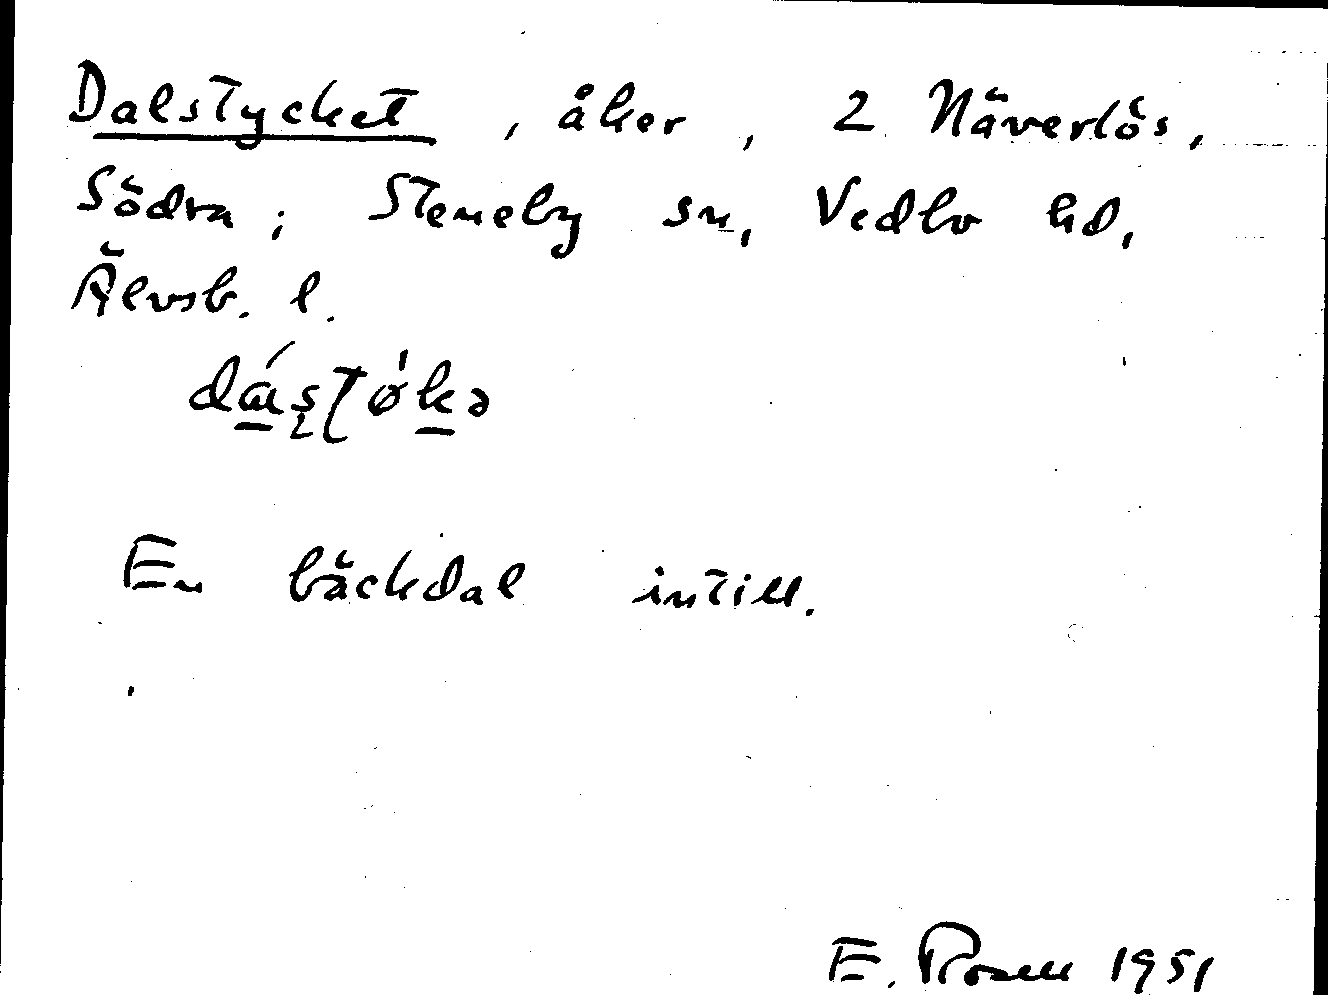 Dalstycket, åker, 2 Näverlös,
Södra; Steneby sn, Vedbo hd,
Älvsb. l.
dáʂʈøkə
En bäckdal intill.
E. Rosell 1951